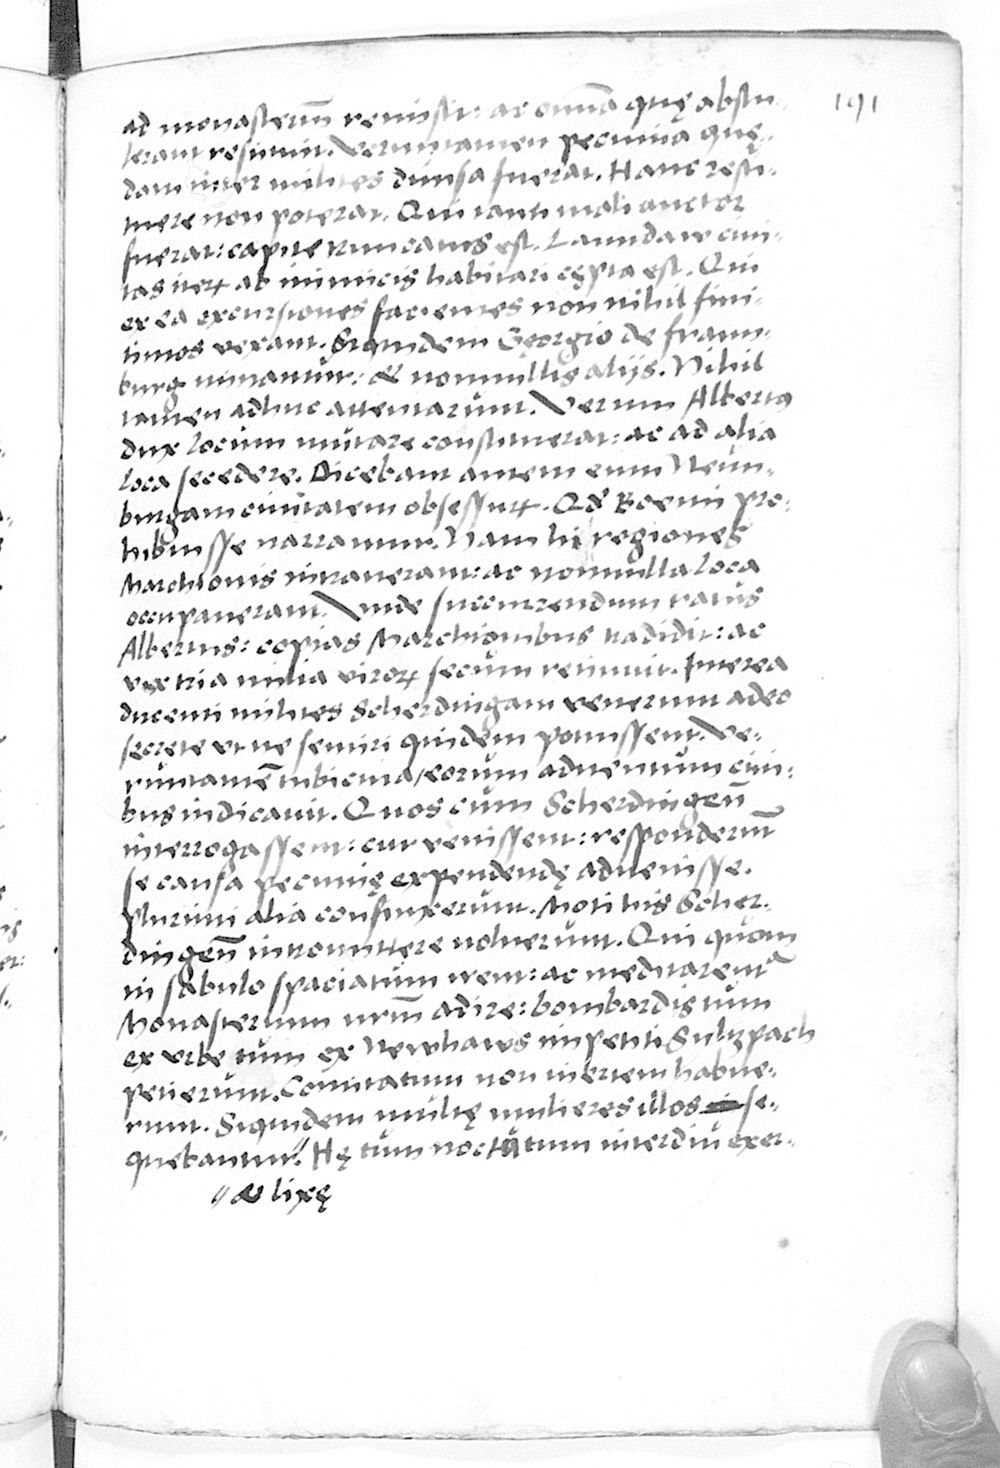 191
ad monasteriū remisit: ac omnīa quę abstu-
lerant restituit. Veruntamen pecunia quę-
dam inter milites diuisa fuerat. Hanc resti-
tuere non poterat. Qui tanti mali auctor
fuerat: capite truncatus est. Laundaw ciui-
tas iterꝝ ab inimicis habitari cępta est. Qui
ex ea excursiones facientes non nihil fini-
timos vexant. Siquidem Georgio de fraun-
burg minantur: & nonnullis alijs. Nihil
tamen adhuc attentarunt. Verum Albertus
dux locum mutare constituerat: ac ad alia
loca secedere. Dicebant autem eum Neun-
burgam ciuitatem obsessurꝝ. Qđ Boemi pro-
hibuisse narrantur. Nam hi regiones
Marchionis intrauerant: ac nonnulla loca
occupauerant. Vnde succurrendum ratus
Albertus: copias Marchionibus tradidit: ac
vix tria milia virorꝝ secum retinuit. Interea
ducenti milites Scherdingam venerunt adeo
secrete vt ne sentiri quidem potuissent. Ve-
runtamē tubicina / eorum aduentum ciui-
bus indicauit. Quos cum Scherdingeñ
interrogassent: cur venissent: responderūt
se causa pecunię expendendę aduenisse.
plurimi alia confinxerunt. Moti his Scher-
dingeñ intromittere noluerunt. Qui quom
in sabulo spaciatum irent: ac meditarentᵃ
Monasterium nr̄m adire: bombardis tum
ex vrbe tum ex Newhaws impetiti Sultzpach
petierunt. Comitatum non inertem habue-
runt. Siquidem multę mulieres illos se-
quebantur〃. Hę tum noctu tum interdiu exer-
〃 & lixę